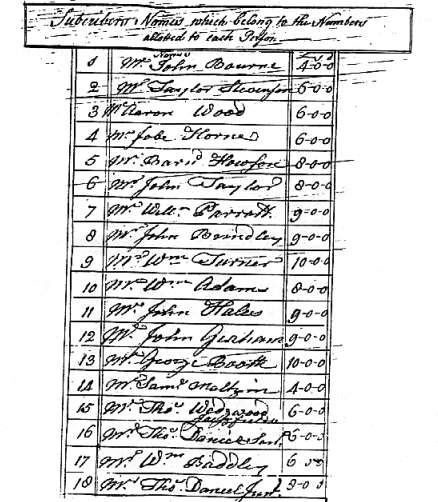 Subscribers Names which belong to the Numbers
allotted to each Person
Names
1 Mr. John Bourne 4-0-0
2 Mr. Taylor Stevenson 6-0-0
3 Mr. Aaron Wood 6-0-0
4 Mr. Jobe Horne 6-0-0
5 Mr. 8-0-0
6 Mr. John Taylor 8-0-0
7 Mr. Willm. Parrott 9-0-0
8 Mr. John Brindley 9-0-0
9 Mr. Wm. Turner 10-0-0
10 Mr. Wm. Adams 8-0-0
11 Mr. John Hales 9-0-0
12 Mr. John Graham 9-0-0
13 Mr. George Booth 10-0-0
14 Mr. Saml. 4-0-0
15 Mr. Thos. Wedgwood 6-0-0
16 Mr. Thos. Daniel Senr. 6-0-0
17 Mr. Wm. Baddley 6
18 Mr. Thos. Daniel Junr. 8-0-0